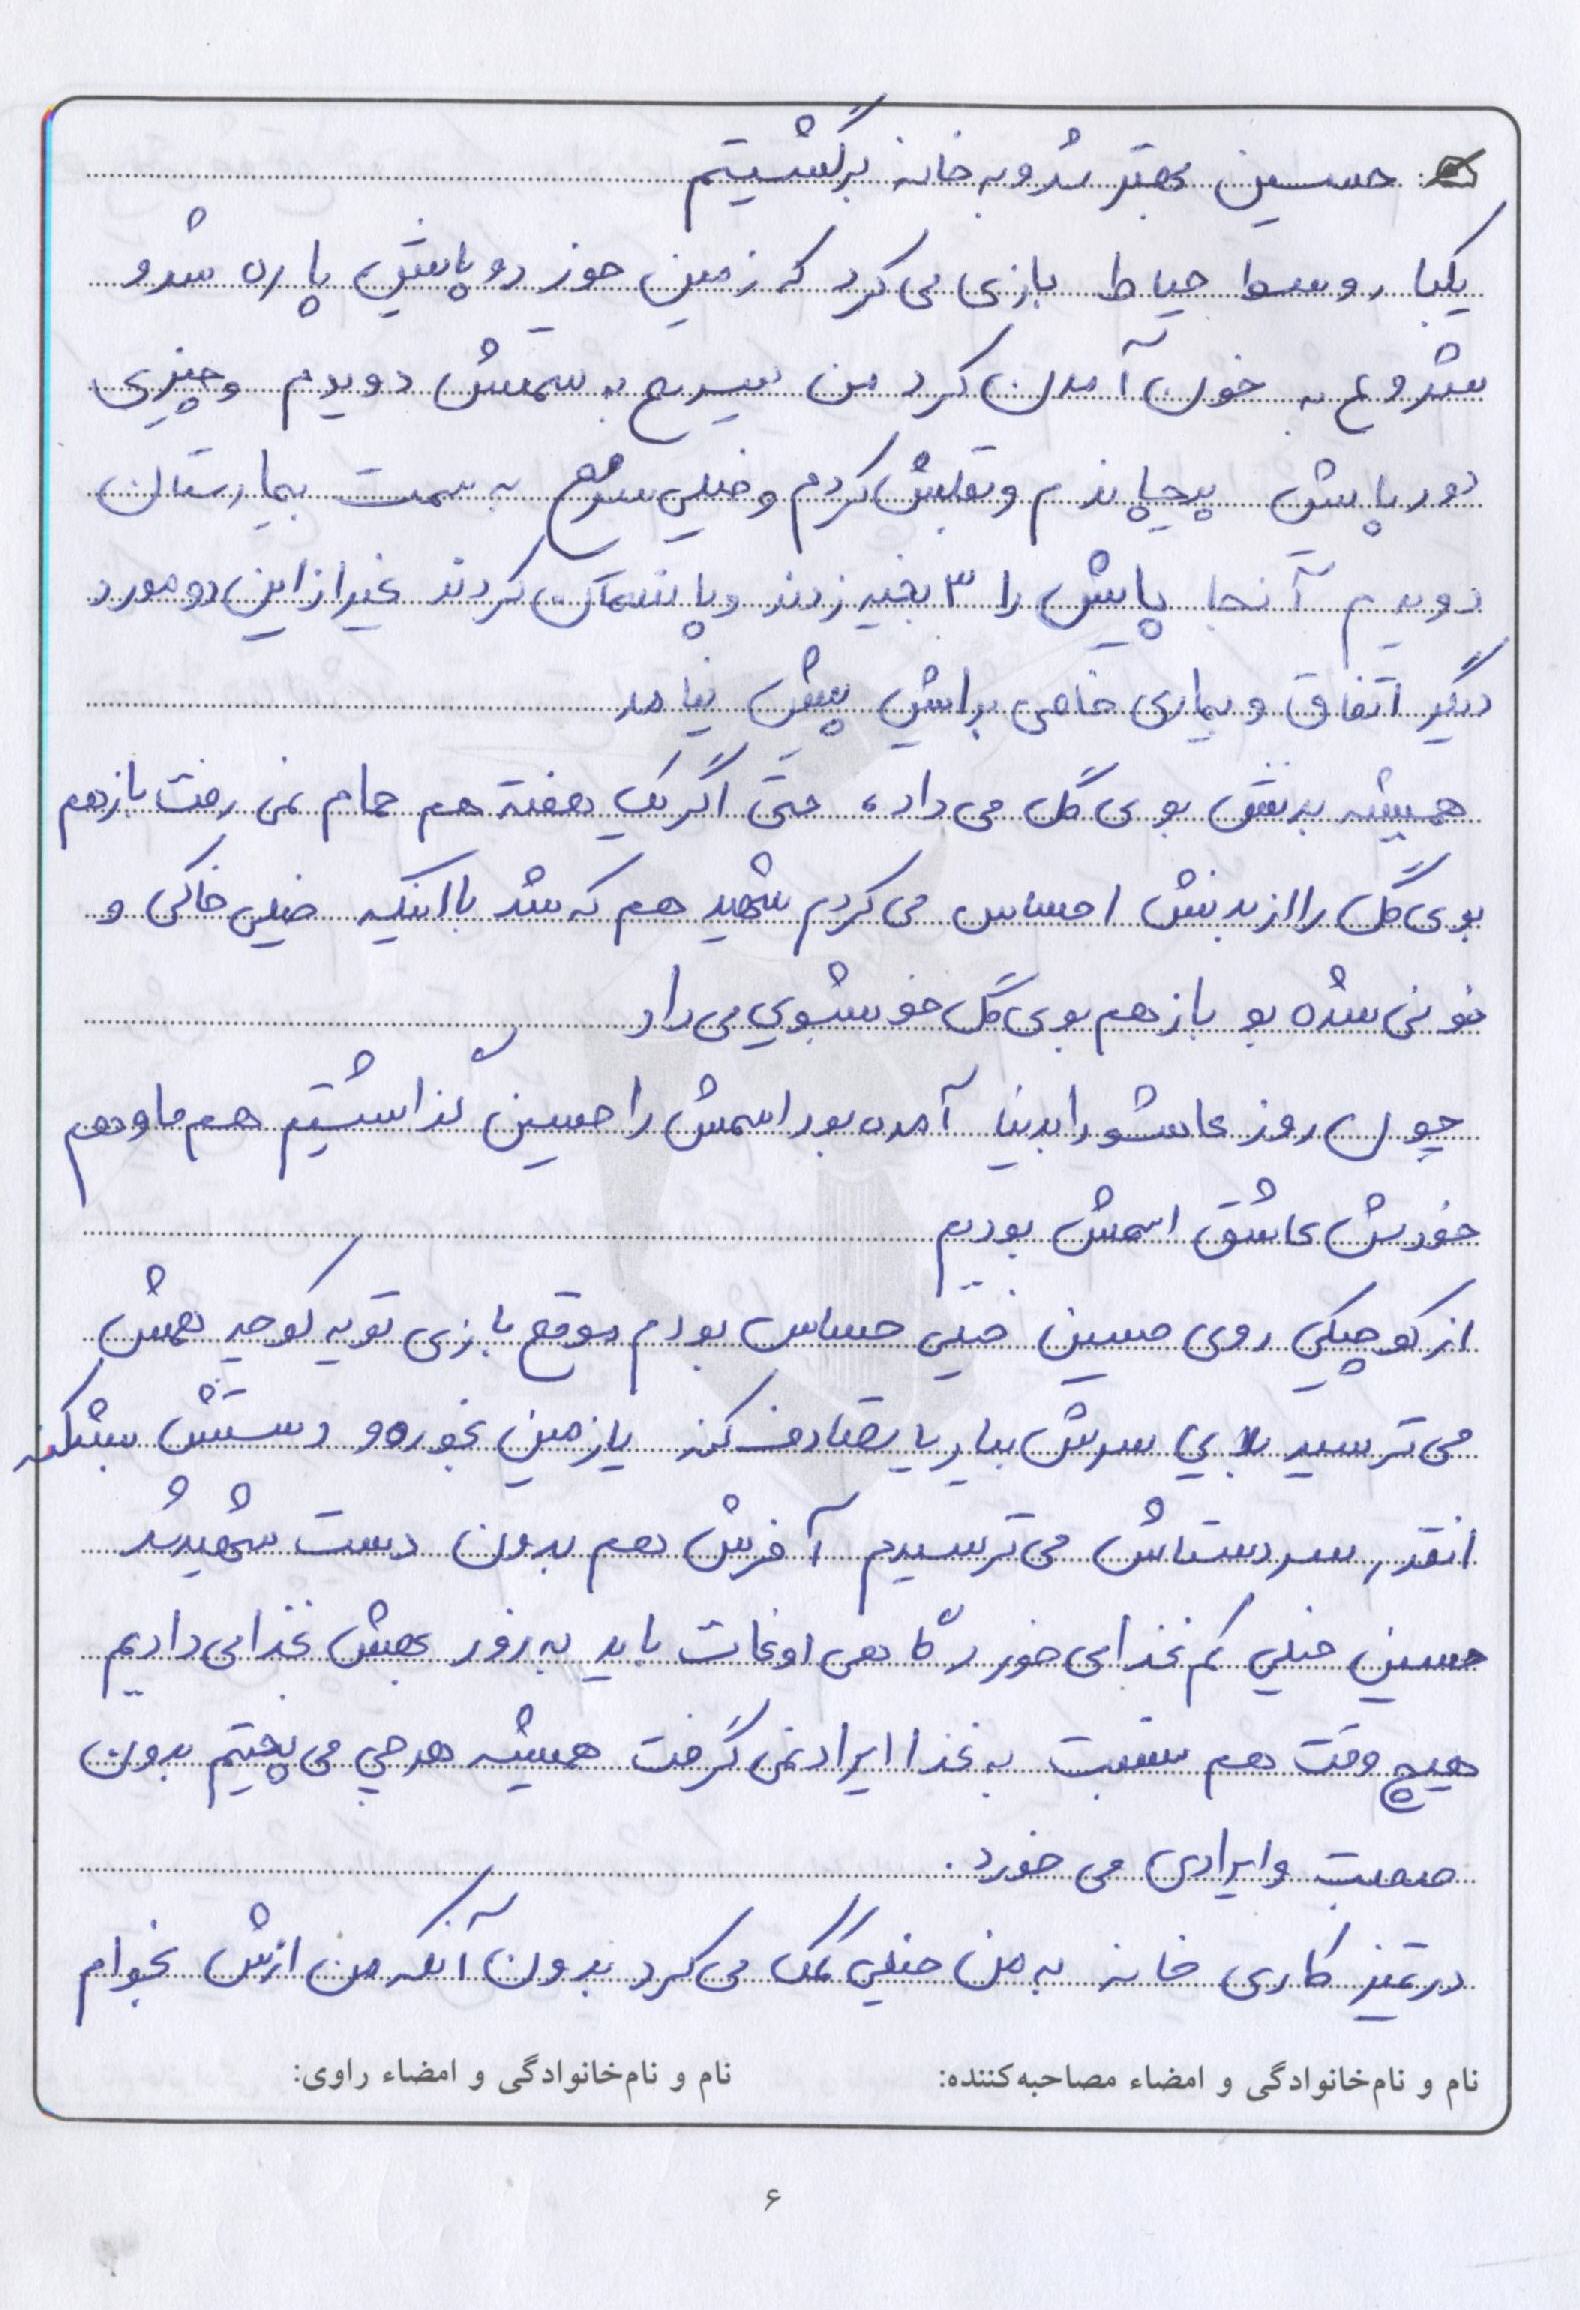 حسین بهتر شد و به خانه برگشتیم
یکبار وسط حیاط بازی می کرد که زمین خورد و پاش پاره شد و
شروع به خون آمدن کرد من سریع به سمتش دویدم و چیزی
دور پاش پیچاندم و بغلش کردم و خیلی سریع به سمت بیمارستان
دویدم آنجا پایش را ۳ بخیه زدند و پانسمان کردند غیر از این دو مورد
دیگر اتفاق و بیماری خاصی براش پیش نیامد
همیشه بدنش بوی گل می داد، حتی اگر یک هفته هم حمام نمی رفت بازهم
بوی گل را از بدنش احساس می کردم شهید هم که شد با اینکه خیلی خاکی و
خونی شده بو بازهم بوی گل خوشبوی می داد
چون روز عاشورا بدنیا آمده بود اسمش را حسین گذاشتیم هم ما و هم
خودش عاشق اسمش بودیم
از کوچیکی روی حسین خیلی حساس بودم موقع بازی تو یه کوچه همش
می ترسید بلایی سرش بیاد یا تصادف کنه یا زمین بخوره و دستش بشکنه
انقدر سر دستاش می ترسیدم آخرش هم بدون دست شهید شد
حسین خیلی کم غذا می خورد گاهی اوغات باید به زور بهش غذا می دادیم
هیچ وقت هم نسبت به غذا ایراد نمی گرفت همیشه هرچی می پختیم بدون
صحبت و ایرادی می خورد.
در تمیز کاری خانه به من خیلی کمک می کرد بدون آنکه من ازش بخوام
نام و نام‌خانوادگی و امضاء مصاحبه‌کننده: نام و نام‌خانوادگی و امضاء راوی:
۶